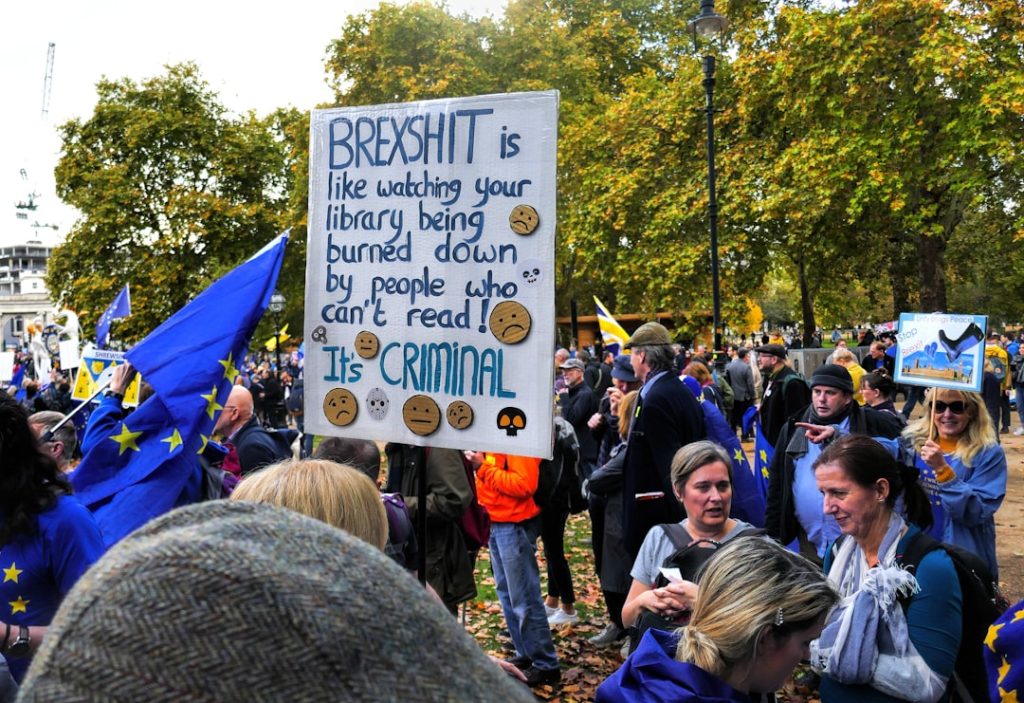 BREXSHIT is
like watching your
library being
burned down
by people who
can't read!
It's CRIMINAL
SHREWSB
Stop
Brexit